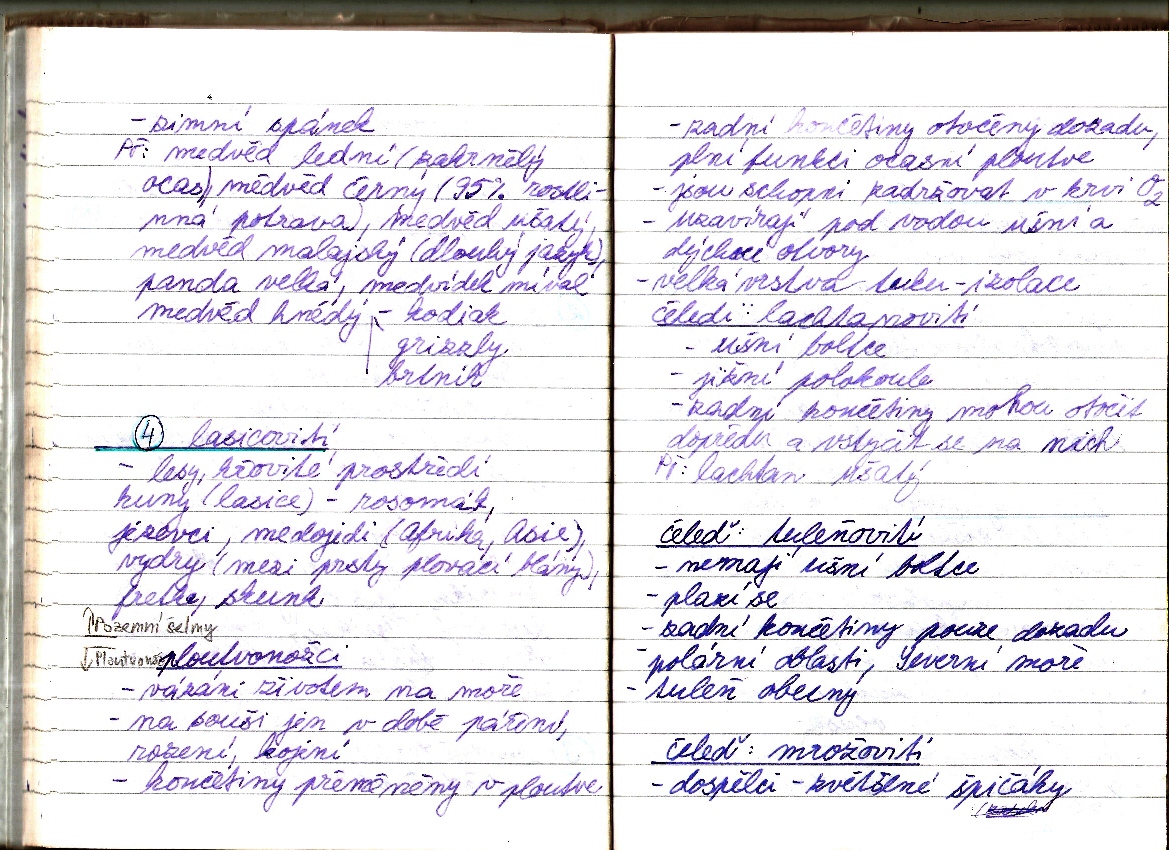 - zimní spánek
Př: medvěd lední (zakrnělý
ocas), medvěd černý (95% rostli-
nná potrava), medvěd ušatý,
medvěd malajský (dlouhý jazyk),
panda velká, medvídek mýval
medvěd hnědý - kodiak
grizzly
brtník
4 lasicovití
- lesy, křovité prostředí
kuny (lasice) - rosomák,
jezevci, medojedi (Afrika, Asie),
vydry (mezi prsty plovací blány),
fretka, skunk
↑Pozemní šelmy
↓Ploutvonožci ploutvonožci
- vázáni životem na moře
- na souši jen v době páření,
rození, kojení
- končetiny přeměněny v ploutve
- zadní končetiny otočeny dozadu,
plní funkci ocasní ploutve
- jsou schopni zadržovat v krvi O2
- uzavírají pod vodou ušní a
dýchací otvory
- velká vrstva tuku - izolace
čeleď: lachtanovití
- ušní boltce
- jižní polokoule
- zadní končetiny mohou otočit
dopředu a vztyčit se na nich
Př: lachtan ušatý
čeleď: tuleňovití
- nemají ušní boltce
- plazí se
- zadní končetiny pouze dozadu
- polární oblasti, severní moře
- tuleň obecný
čeleď: mrožovití
- dospělci - zvětšené špičáky